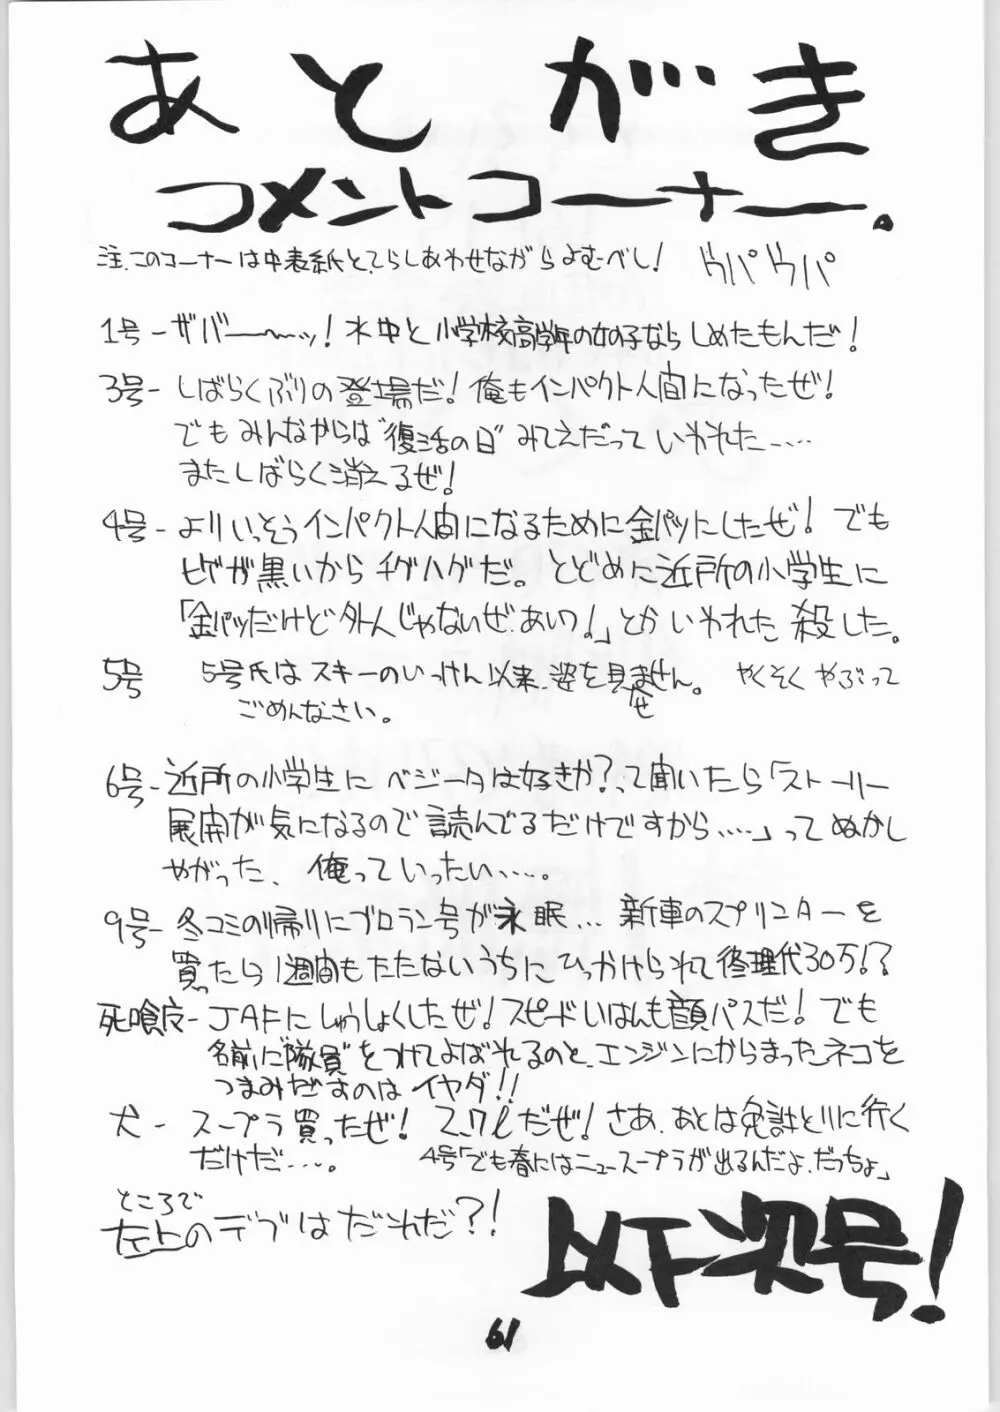 あとがき
コメントコーナー。
注.このコーナーは中表紙とてらしあわせながらよむべし! ウパウパ
1号-ザバ――ッ!水中と小学校高学年の女の子ならしめたもんだ!
3号-しばらくぶりの登場だ!俺もインパクト人間になったぜ!
でもみんなからは"復活の日"みてえだっていわれた……
またしばらく消えるぜ!
4号-よりいっそうインパクト人間になるために金パツにしたぜ!でも
ヒゲが黒いからチグハグだ。とどめに近所の小学生に
「金パツだけど外人じゃないぜ.あいつ!」とかいわれた 殺した。
5号 5号氏はスキーのいっけん以来.姿を見せません。 やくそくやぶって
ごめんなさい。
6号-近所の小学生にベジータは好きか?って聞いたら「ストーリー
展開が気になるので読んでるだけですから……」ってぬかし
やがった、俺っていったい……。
9号-冬コミの帰りにブロラン号が永眠… 新車のスプリンターを
買ったら1週間もたたないうちにひっかけられて修理代30万!?
死喰皮-JAFにしゅうしょくしたぜ!スピードいはんも顔パスだ!でも
名前に"隊員"をつけてよばれるのと.エンジンにからまったネコを
つまみだすのはイヤダ!!
犬-スープラ買ったぜ! 2.7lだぜ!さあ.あとは免許とりに行く
だけだ……。 4号「でも春にはニュースープラが出るんだよ.だっちょ」
ところで
左上のデブはだれだ?!
以下次号!
61